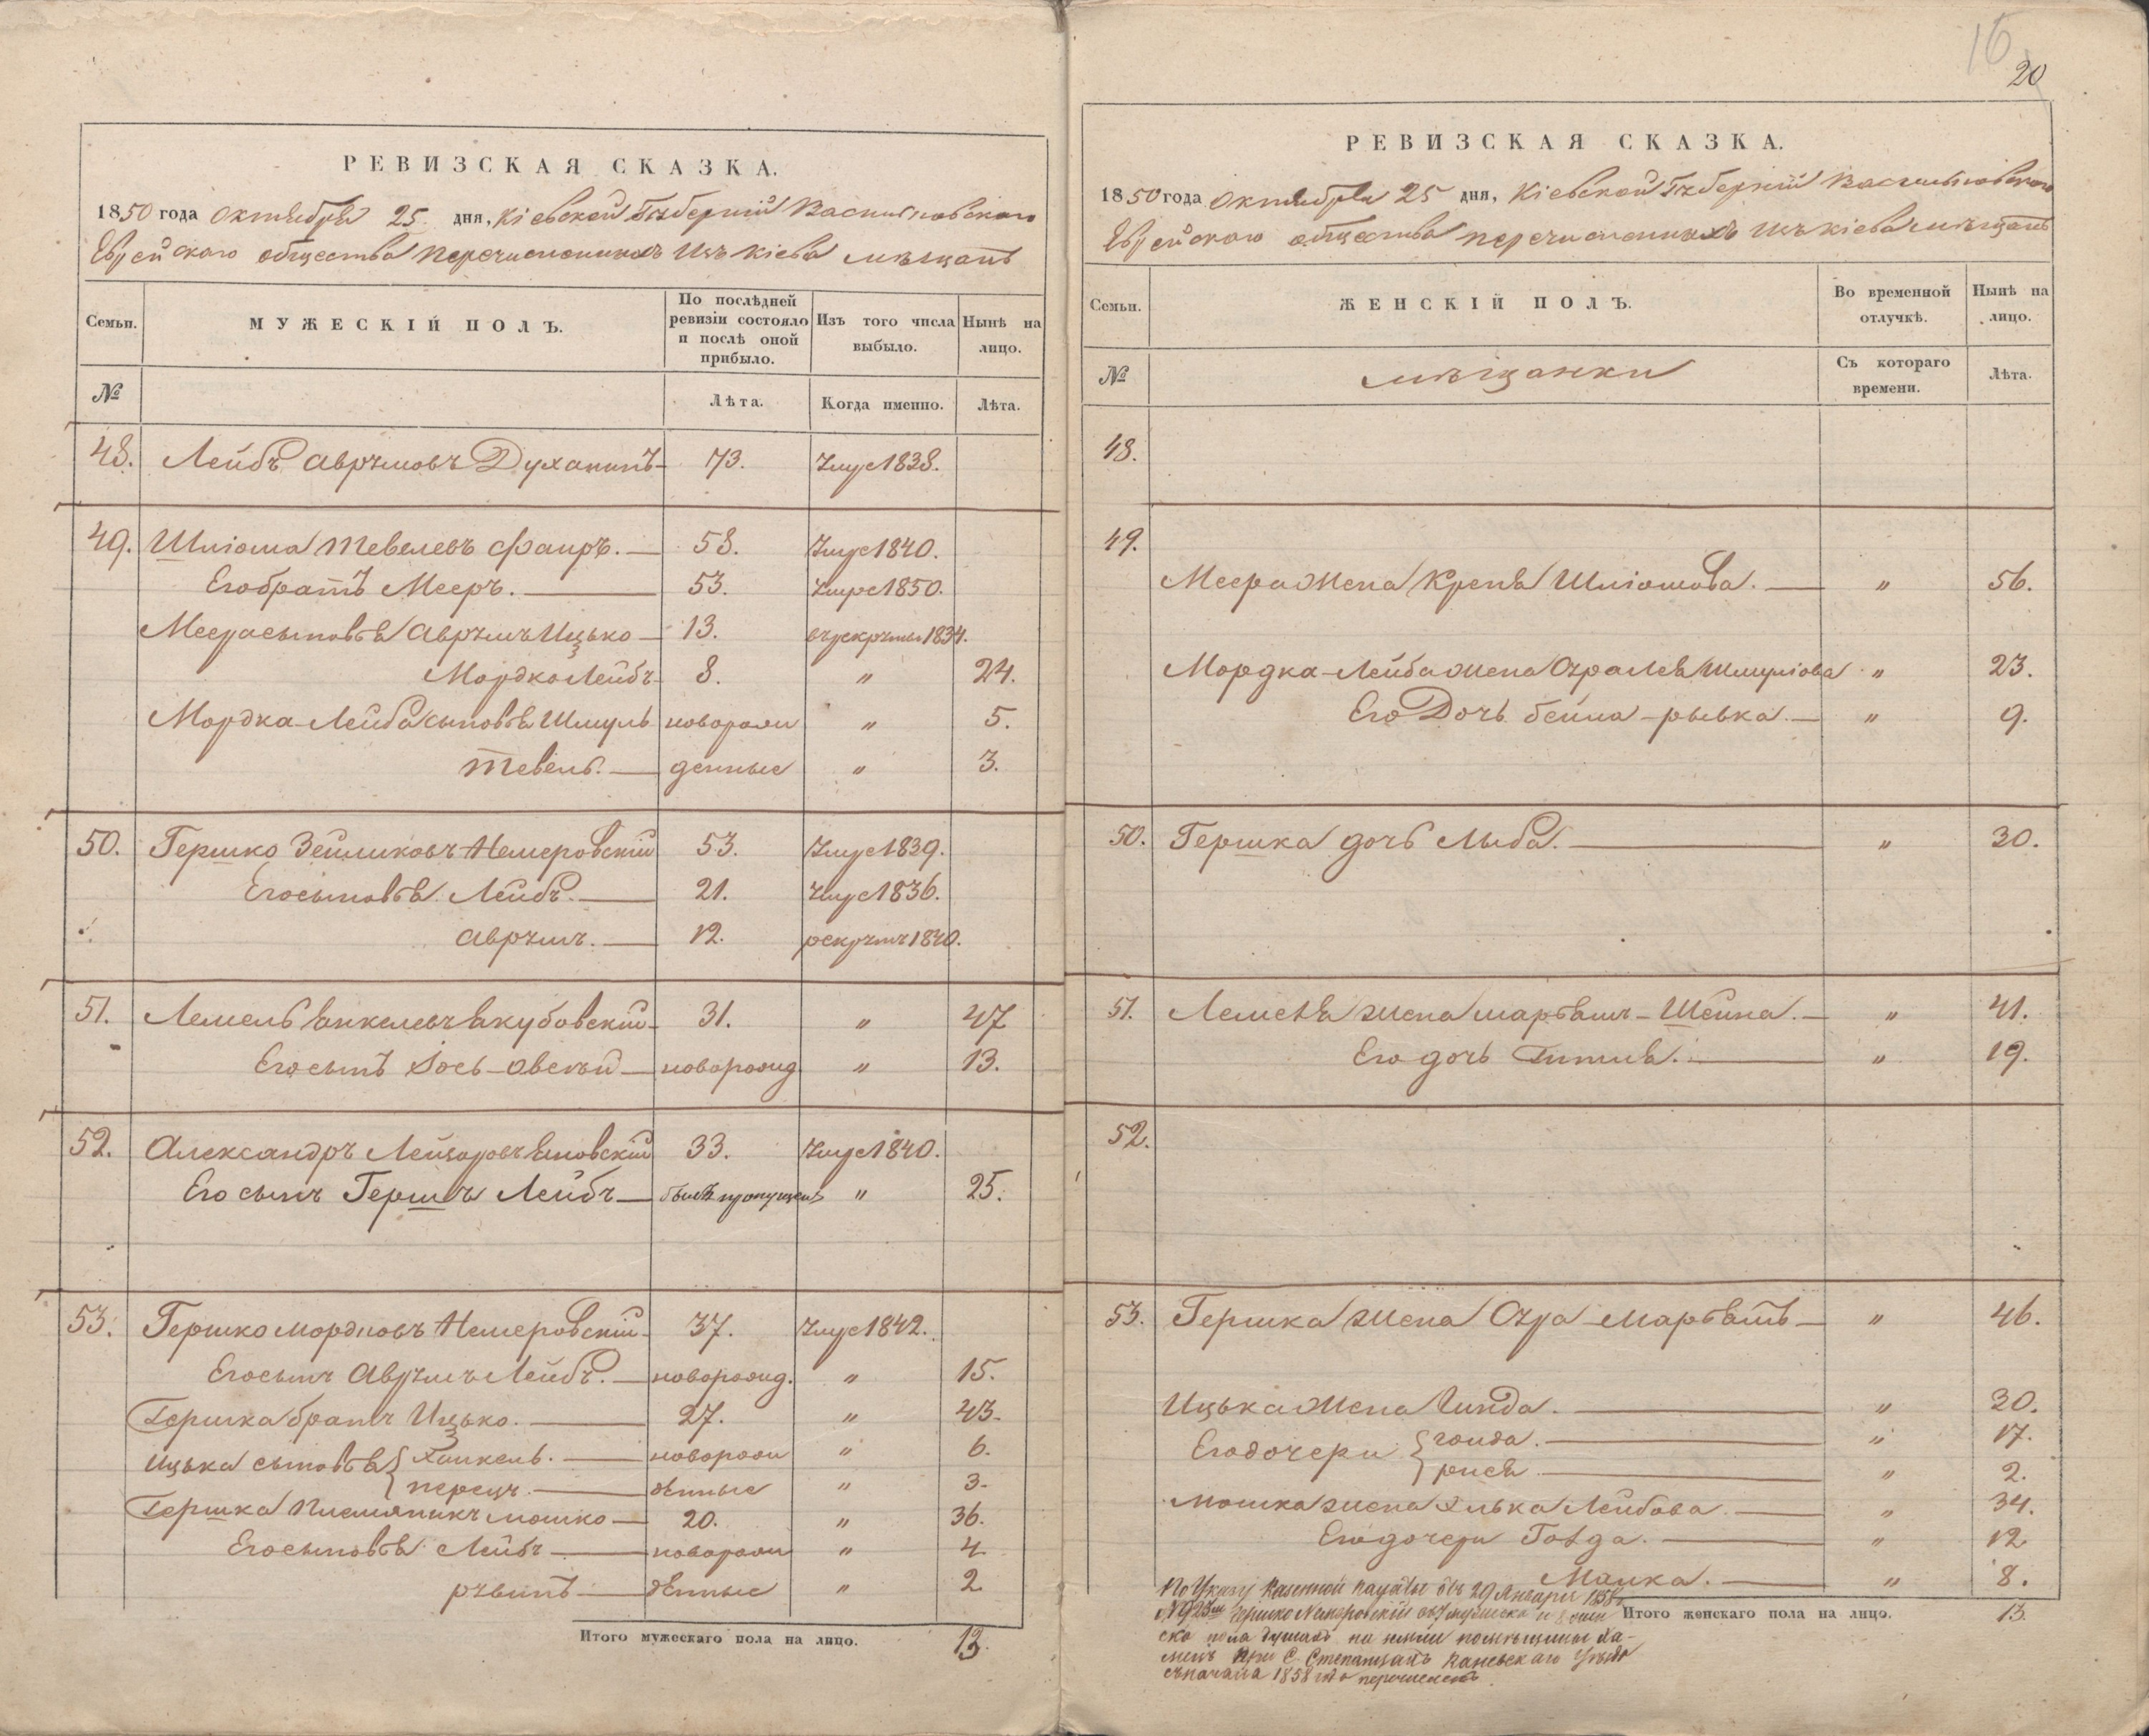 РЕВИЗСКАЯ СКАЗКА.
1850 года Октября 25 дня, Кіевской Губерніи Васильковскаго
Еврейскаго общества перечисленныхъ изъ Кіева мѣщанъ
Семьи.
МУЖЕСКІЙ ПОЛЪ.
По послѣдней ревизіи состояло и послѣ оной прибыло.
Изъ того числа выбыло.
Нынѣ на лицо.
№
Лѣта.
Когда именно.
Лѣта.
48. Лейбъ Аврумовъ Духанинъ 73. Умре 1838.
49. Шліома Тевелевъ Фаиръ. 58. Умре 1840.
Его братъ Мееръ. 53. Умре 1850.
Меера сыновья Аврумъ Ицько 13. въ рекруты 1834.
Мордко Лейбъ 8. " 24.
Мордка-Лейба сыновья Шмуль новорож " 5.
Тевель. денные " 3.
50. Гершко Зейликовъ Немеровскій 53. Умре 1839.
Его сыновья Лейбъ. 21. Умре 1836.
Аврумъ. 12. рекрутъ 1840.
51. Лемель Янкелевъ Якубовскій 31. " 47
Его сынъ Іось-Овсѣй новорожд. " 13.
52. Александръ Лейзоровъ Яновскій 33. Умре 1840.
Его сынъ Гершъ Лейбъ былъ пропущенъ " 25.
53. Гершко Мордковъ Немеровскій 37. Умре 1842.
Его сынъ Аврумъ Лейбъ. новорожд. " 15.
Гершка братъ Ицько. 27. " 43.
Ицька сыновья Хаикель. новорож " 6.
Перецъ. денные " 3.
Гершка племяникъ Мошко 20. " 36.
Его сыновья Лейбъ новорож " 4
Рувинъ денные " 2
Итого мужескаго пола на лицо. 13.
16
20
РЕВИЗСКАЯ СКАЗКА.
1850 года Октября 25 дня, Кіевской Губерніи Васильковскаго
Еврейскаго общества перечисленныхъ изъ Кіева мѣщанъ
Семьи.
ЖЕНСКІЙ ПОЛЪ.
Во временной отлучкѣ.
Нынѣ на лицо.
№
мѣщанки
Съ котораго времени.
Лѣта.
48.
49.
Меера жена Креня Шліомова. " 56.
Мордка-Лейба жена Шмуліова " 23.
Его Дочь Бейла-рывка. " 9.
50. Гершка дочь Лыба. " 30.
51. Лемеля жена Марьямъ-Шейна. " 41.
Его дочь Гитля. " 19.
52.
53. Гершка жена Марьямъ " 46.
Ицька жена Гинда. " 30.
Его дочери " 17.
рися " 2.
Мошка жена Элька Лейбова. " 34.
Его дочери Голда. " 12
Малка. " 8.
По Указу Казенной Палаты отъ 29 Января 1858
Гершко Немеровскій
ско пола душахъ на
при С. Степанцахъ Каневскаго Уѣзда
съ начала 1858 года перечисленъ
Итого женскаго пола на лицо. 13.